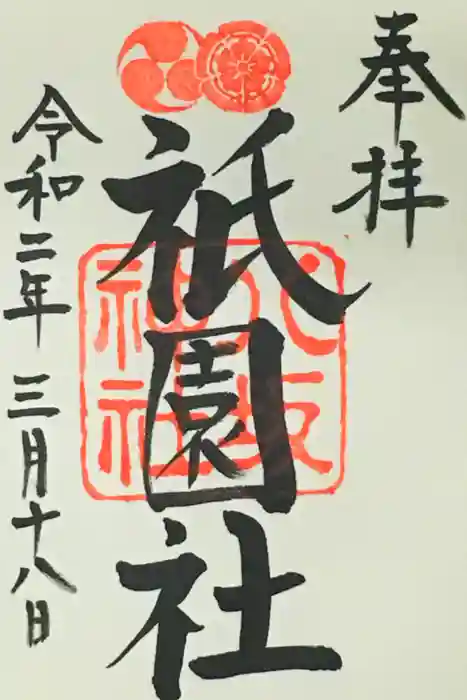 奉拝
八坂
神社
祇園社
令和二年 三月十八日